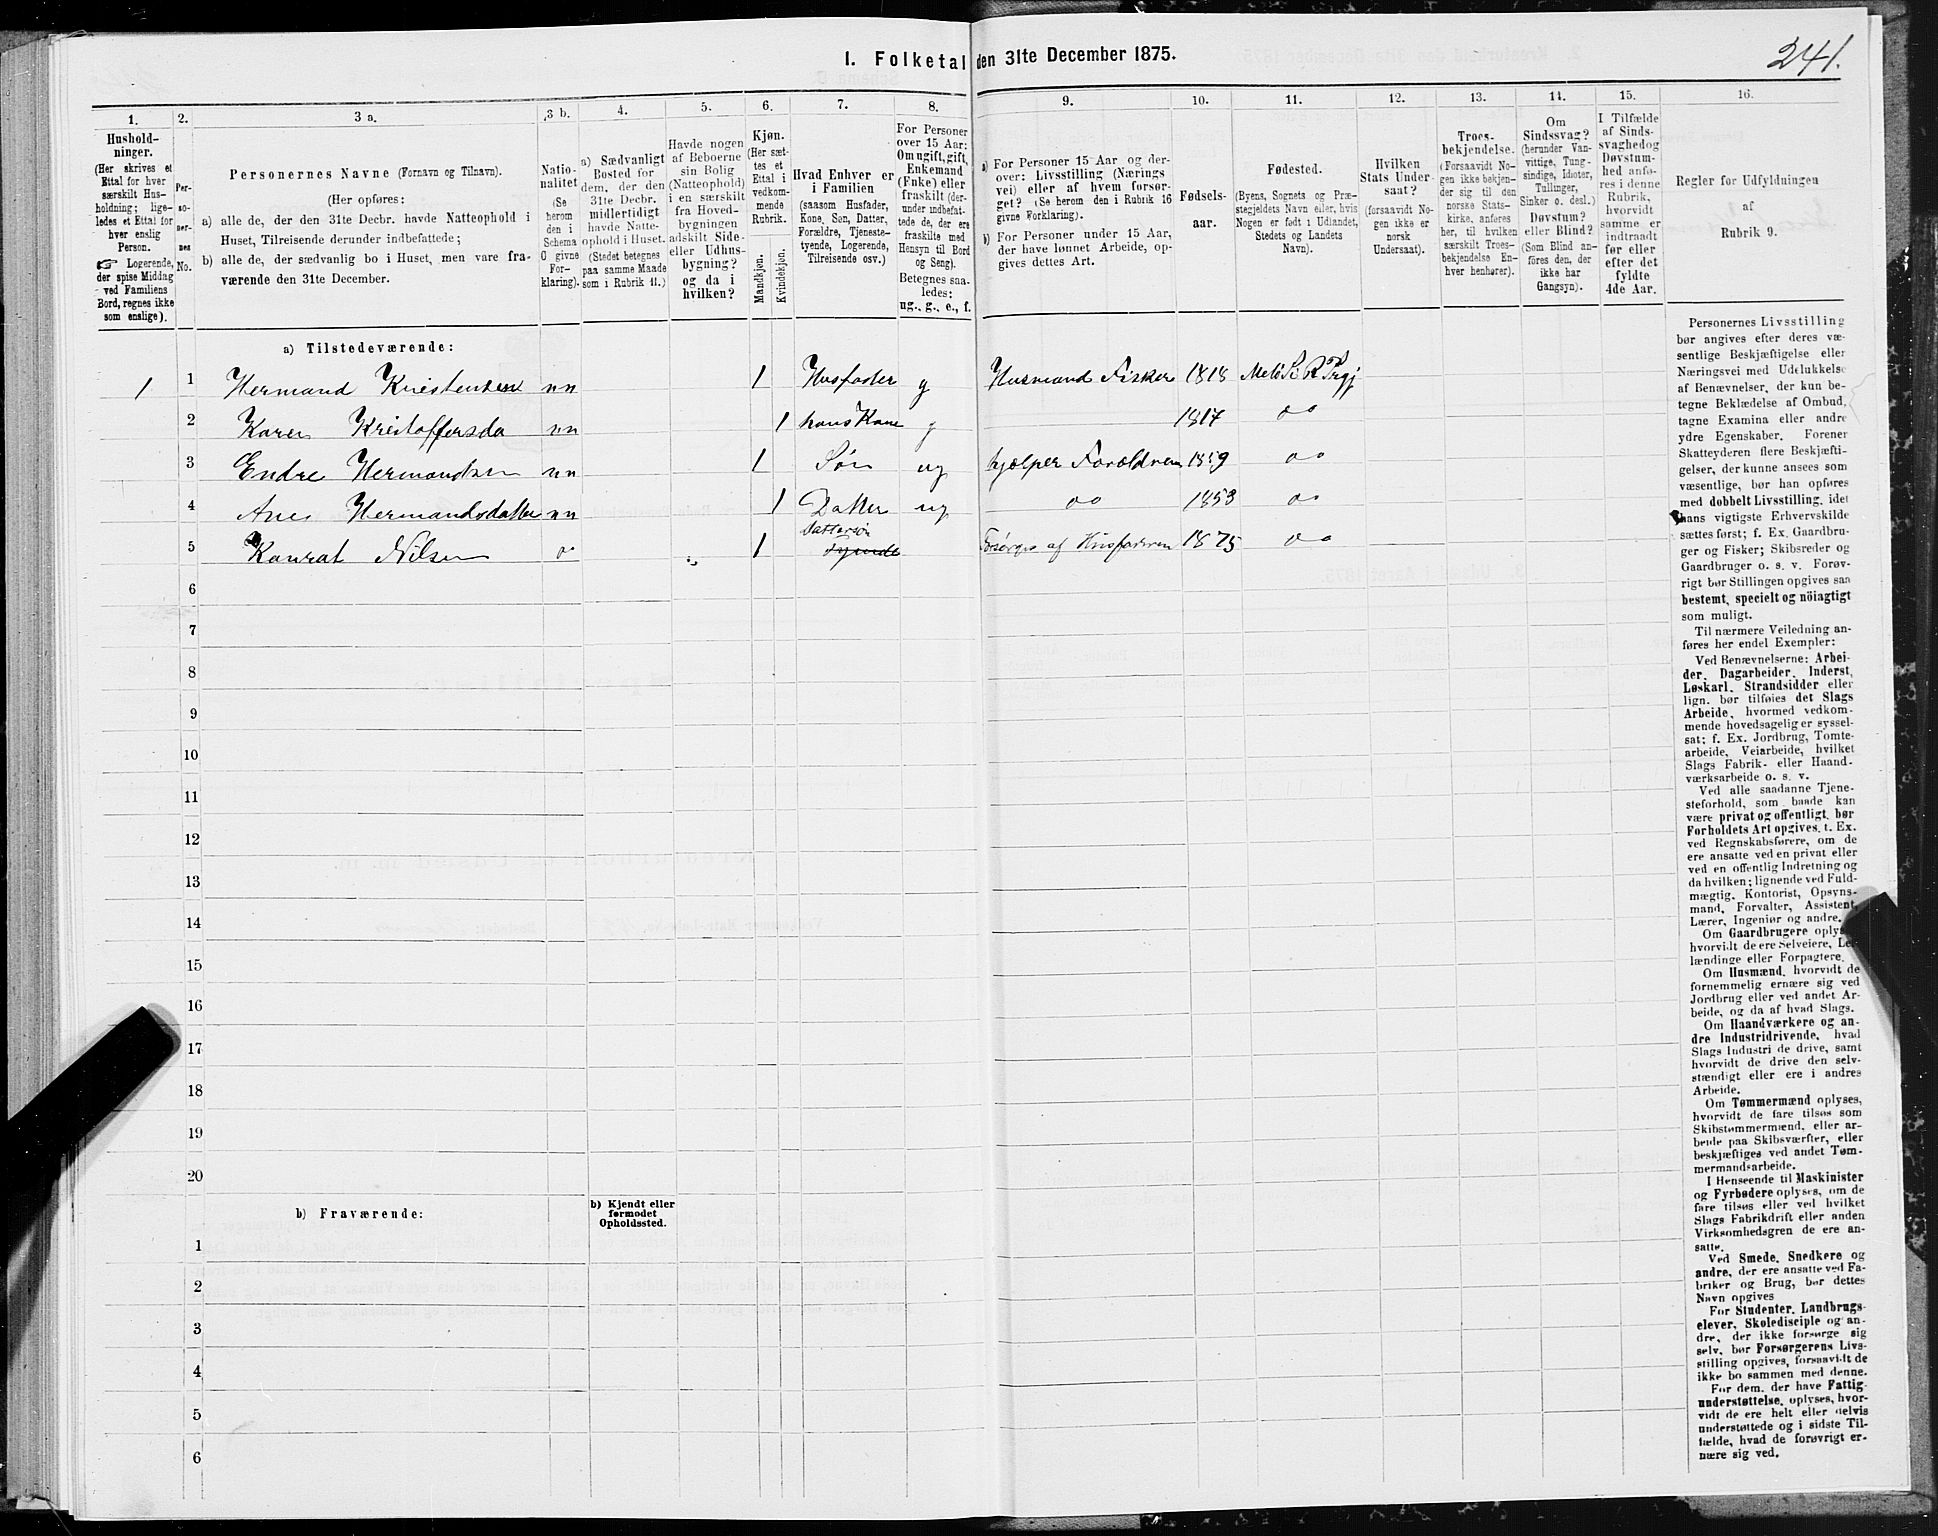 I. Folketal den 31te December 1875.
241.
1.
Hushold-
ninger.
(Her skrives et
Ettal for hver
særskilt Hus-
holdning; lige-
ledes et Ettal for
hver enslig
Person.
☞ Logerende,
der spise Middag
ved Familiens
Bord, regnes ikke
som enslige).
2.
Per-
so-
ner-
nes
No.
3 a.
Personernes Navne (Fornavn og Tilnavn).
(Her opføres:
a) alle de, der den 31te Decbr. havde Natteophold i
Huset, Tilreisende derunder indbefattede;
b) alle de, der sædvanlig bo i Huset, men vare fra-
værende den 31te December.
3 b.
Natio-
nalitet
(Se
herom
den i
Schema
O givne
For-
klaring).
4.
a) Sædvanligt
Bosted for
dem, der den
31te Decbr.
midlertidigt
havde Natte-
ophold i Huset.
(Stedet betegnes
paa samme Maade
som i Rubrik 11.)
5.
Havde nogen
af Beboerne
sin Bolig
(Natteophold)
i en særskilt
fra Hoved-
bygningen
adskilt Side-
eller Udhus-
bygning?
og da i
hvilken?
6.
Kjøn.
(Her sæt-
tes et
Ettal i
vedkom-
mende
Rubrik.
Mandkjøn.
Kvindekjøn.
7.
Hvad Enhver er
i Familien
(saasom Husfader,
Kone, Søn, Datter,
Forældre, Tjeneste-
tyende, Logerende,
Tilreisende osv.)
8.
For Personer
over 15 Aar:
Om ugift, gift,
Enkemand
(Enke) eller
fraskilt (der-
under indbefat-
tede de, der ere
fraskilte med
Hensyn til Bord
og Seng).
Betegnes saa-
ledes:
ug., g., e., f.
9.
a) For Personer 15 Aar og der-
over: Livsstilling (Nærings
vei) eller af hvem forsør-
get? (Se herom den i Rubrik 16
givne Forklaring).
b) For Personer under 15 Aar,
der have lønnet Arbeide, op-
gives dettes Art.
10.
Fødsels-
aar.
11.
Fødested.
(Byens, Sognets og Præ-
stegjeldets Navn eller, hvis
Nogen er født i Udlandet,
Stedets og Landets
Navn).
12.
Hvilken
Stats Under-
saat?
(forsaavidt No-
gen ikke er
norsk
Undersaat).
13.
Troes-
bekjendelse.
(Forsaavidt No-
gen ikke bekjen-
der sig til den
norske Stats-
kirke, anføres
her, til hvilken
særskilt Troes-
bekjendelse En-
hver henhører).
14.
Om
Sindssvag?
(herunder Van-
vittige, Tung-
sindige, Idioter,
Tullinger,
Sinker o. desl.)
Døvstum?
eller Blind?
(Som Blind an-
føres den, der
ikke har
Gangsyn).
15.
I Tilfælde
af Sinds-
svaghed og
Døvstum-
hed anfø-
res i denne
Rubrik,
hvorvidt
samme er
indtraadt
før eller
efter det
fyldte
4de Aar.
16.
Regler for Udfyldningen
af
Rubrik 9.
a) Tilstedeværende:
1 1 Hermand Kristensen nn 1 Husfader g Husmand Fisker 1818
2 Karen Kristoffersda nn 1 hans Kone g 1817 oo
3 Endre Hermandsen nn 1 Søn ug hjelper Forældrene 1859 oo
4 Ane Hermandsdatter nn 1 Datter ug oo 1853 oo
Dattersøn
5 Konrat Nilsen oo 1 Forsørges af Husfaderen 1875 oo
6
7
8
9
10
11
12
13
14
15
16
17
18
19
20
b) Fraværende:
b) Kjendt eller
formodet
Opholdssted.
1
2
3
4
5
6
Personernes Livsstilling
bør angives efter deres væ-
sentlige Beskjæftigelse eller
Næringsvei med Udelukkelse
af Benævnelser, der kun be-
tegne Beklædelse af Ombud,
tagne Examina eller andre
ydre Egenskaber. Forener
Skatteyderen flere Beskjæfti-
gelser, der kunne ansees som
væsentlige, bør han opføres
med dobbelt Livsstilling, idet
hans vigtigste Erhvervskilde
sættes først; f. Ex. Gaardbru-
ger og Fisker; Skibsreder og
Gaardbruger o. s. v. Forøv-
rigt bør Stillingen opgives saa
bestemt, specielt og nöiagtigt
som muligt.
Til nærmere Veiledning an-
føres her endel Exempler:
Ved Benævnelserne: Arbei-
der, Dagarbeider, Inderst,
Løskarl, Strandsidder eller
lign. bør tilføies det Slags
Arbeide, hvormed vedkom-
mende hovedsagelig er syssel-
sat; f. Ex. Jordbrug, Tomte-
arbeide, Veiarbeide, hvilket
Slags Fabrik- eller Haand-
værksarbeide o. s. v.
Ved alle saadanne Tjene-
steforhold, som baade kan
være privat og offentligt, bør
Forholdets Art opgives, t. Ex.
ved Regnskabsførere, om de
ere ansatte ved en privat eller
ved en offentlig Indretning og
da hvilken; lignende ved Fuld-
mægtig, Kontorist, Opsyns-
mand, Forvalter, Assistent,
Lærer, Ingeniør og andre.
Om Gaardbrugere oplyses,
hvorvidt de ere Selveiere, Lei-
lændinge eller Forpagtere.
Om Husmænd, hvorvidt de
fornemmelig ernære sig ved
Jordbrug eller ved andet Ar-
beide, og da af hvad Slags.
Om Haandværkere og an-
dre Industridrivende, hvad
Slags Industri de drive, samt
hvorvidt de drive den selv-
stændigt eller ere i andres
Arbeide.
Om Tømmermænd oplyses,
hvorvidt de fare tilsøs som
Skibstømmermænd, eller ar-
beide paa Skibsværfter, eller
beskjæftiges ved andet Tøm-
mermandsarbeide.
I Henseende til Maskinister
og Fyrbødere oplyses, om de
fare tilsøs eller ved hvilket
Slags Fabrikdrift eller anden
Virksomhedsgren de ere an-
satte.
Ved Smede, Snedkere og
andre, der ere ansatte ved Fa-
briker og Brug, bør dettes
Navn opgives
For Studenter, Landbrugs-
elever, Skoledisciple og an-
dre, der ikke forsørge sig
selv, bør Forsørgerens Livs-
stilling opgives, forsaavidt de
ikke bo sammen med denne.
For dem, der have Fattig-
understøttelse, oplyses, hvor-
vidt de ere helt eller delvis
understøttede og i sidste Til-
fælde, hvad de forøvrigt er-
nære sig ved.